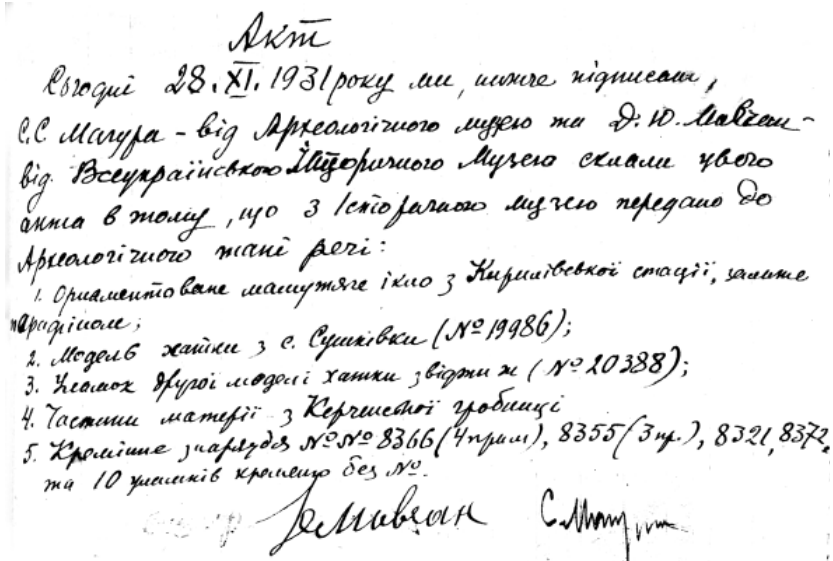 Акт
Сьогодні 28.XI.1931 року ми, нижче підписані,
С.С Магура – від Археологічного музею та Д.Ю. Мовчан –
від Всеукраїнського Історичного Музею склали цього
акта в тому, що з Історичного музею передано до
Археологічного такі речі:
1. Орнаментоване мамутяче ікло з Кирилівської стації, залите
парафіном;
2. Модель хатки з с. Сушківки (№ 19986);
3. Уламок другої моделі хатки звідти ж (№ 20388);
4. Частини матерії з Керченської гробниці
5. Кремінне знаряддя №№ 8366 (4 прим), 8355 (3 пр.), 8321, 8372,
та 10 уламків кременю без №.
Мовчан С. Магура